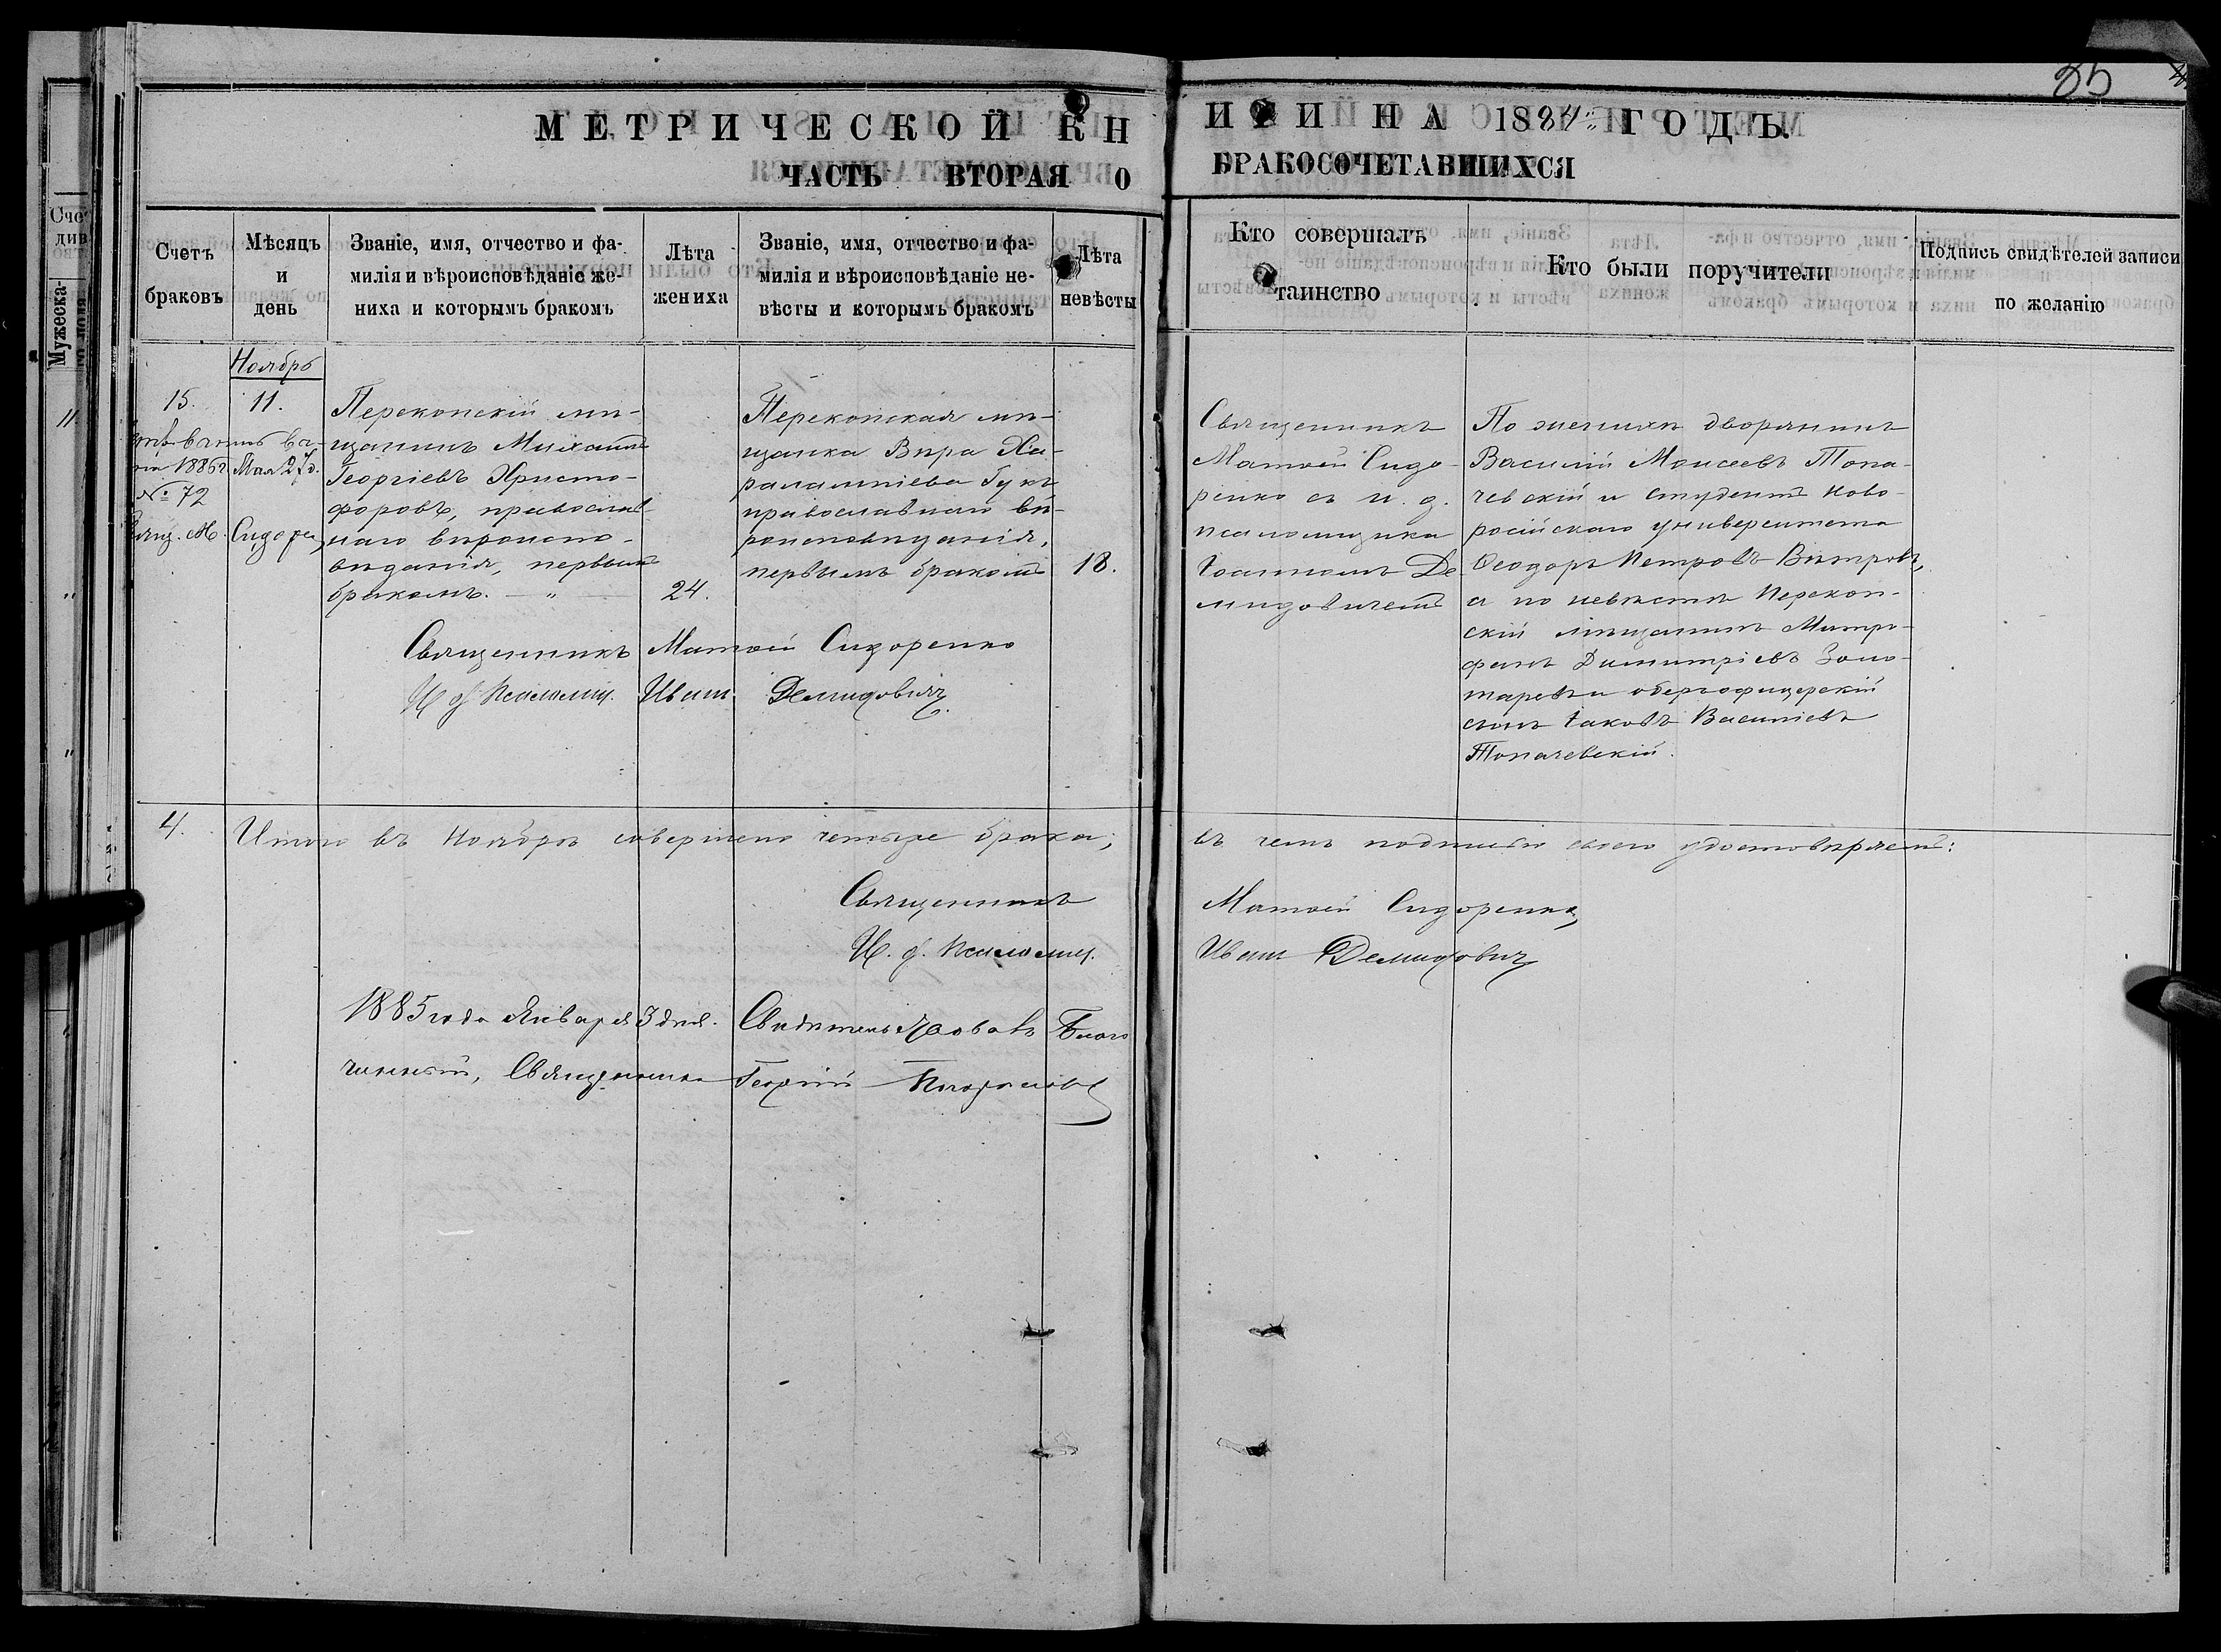 МЕТРИЧЕСКОЙ КН
ИГИ НА 1884 ГОДЪ.
85
ЧАСТЬ ВТОРАЯ О
БРАКОСОЧЕТАВШИХСЯ
Счетъ браковъ
Мѣсяцъ и день
Званіе, имя, отчество и фа-
милія и вѣроисповѣданіе же-
ниха и которымъ бракомъ
Лѣта
жениха
Званіе, имя, отчество и фа-
милія и вѣроисповѣданіе не-
вѣсты и которымъ бракомъ
Лѣта
невѣсты
Кто совершалъ
таинство
Кто были поручители
Подпись свидѣтелей записи
по желанію
Ноябрь
15.
11.
1886 г. Мая 27 д.
№ 72
Перекопскій мѣ-
щанинъ Михаилъ
Георгіевъ Христо-
форовъ, православ-
наго вѣроиспо-
вѣданія, первымъ
бракомъ. — „ —
24.
Перекопская мѣ-
щанка Вѣра Ха-
рала��піева Гукъ
православнаго вѣ-
роисповѣданія,
первымъ бракомъ
18.
Священникъ
Матѳей Сидо-
ренко съ и. д.
псаломщика
Іоанномъ Де-
мидовичемъ
По женихѣ дворянинъ
Василій Моисеевъ Топа-
чевскій и студентъ Ново-
россійскаго университета
Ѳеодоръ Петровъ Вѣтровъ,
а по невѣстѣ Перекоп-
скій мѣщанинъ Митро-
фанъ Димитріевъ Золо-
таревъ и оберъофицерскій
сынъ Іаковъ Василіевъ
Топачевскій.
Священникъ Матѳей Сидоренко
И. д. Псаломщ. Иванъ Демидовичъ.
4.
Итого въ Ноябрѣ совершено четыре брака;
въ чемъ подписью своею удостовѣряемъ:
Священникъ
Матѳей Сидоренко,
И. д. Псаломщ.
Иванъ Демидовичъ
1885 года Января 3 дня. Свидѣтельствовалъ Благо
чинный, Священникъ Георгій